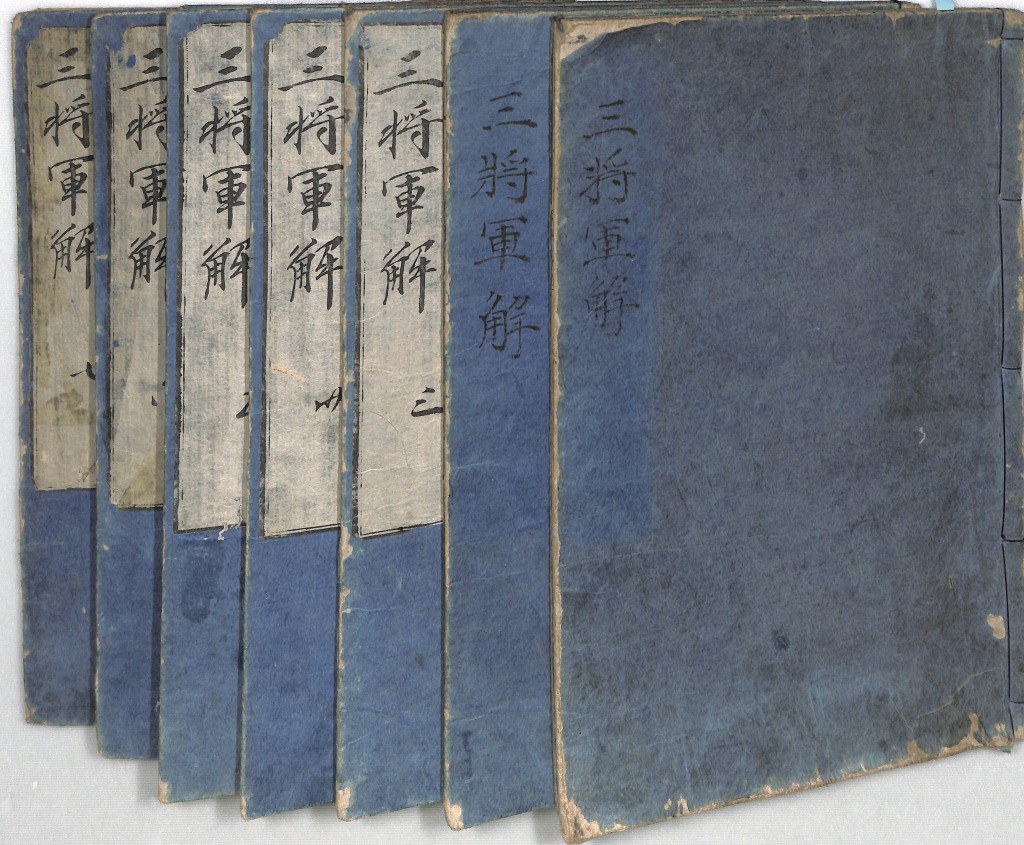 三将軍解
三將軍解
三将軍解
三
三将軍解
三将軍解
三将軍解
三将軍解